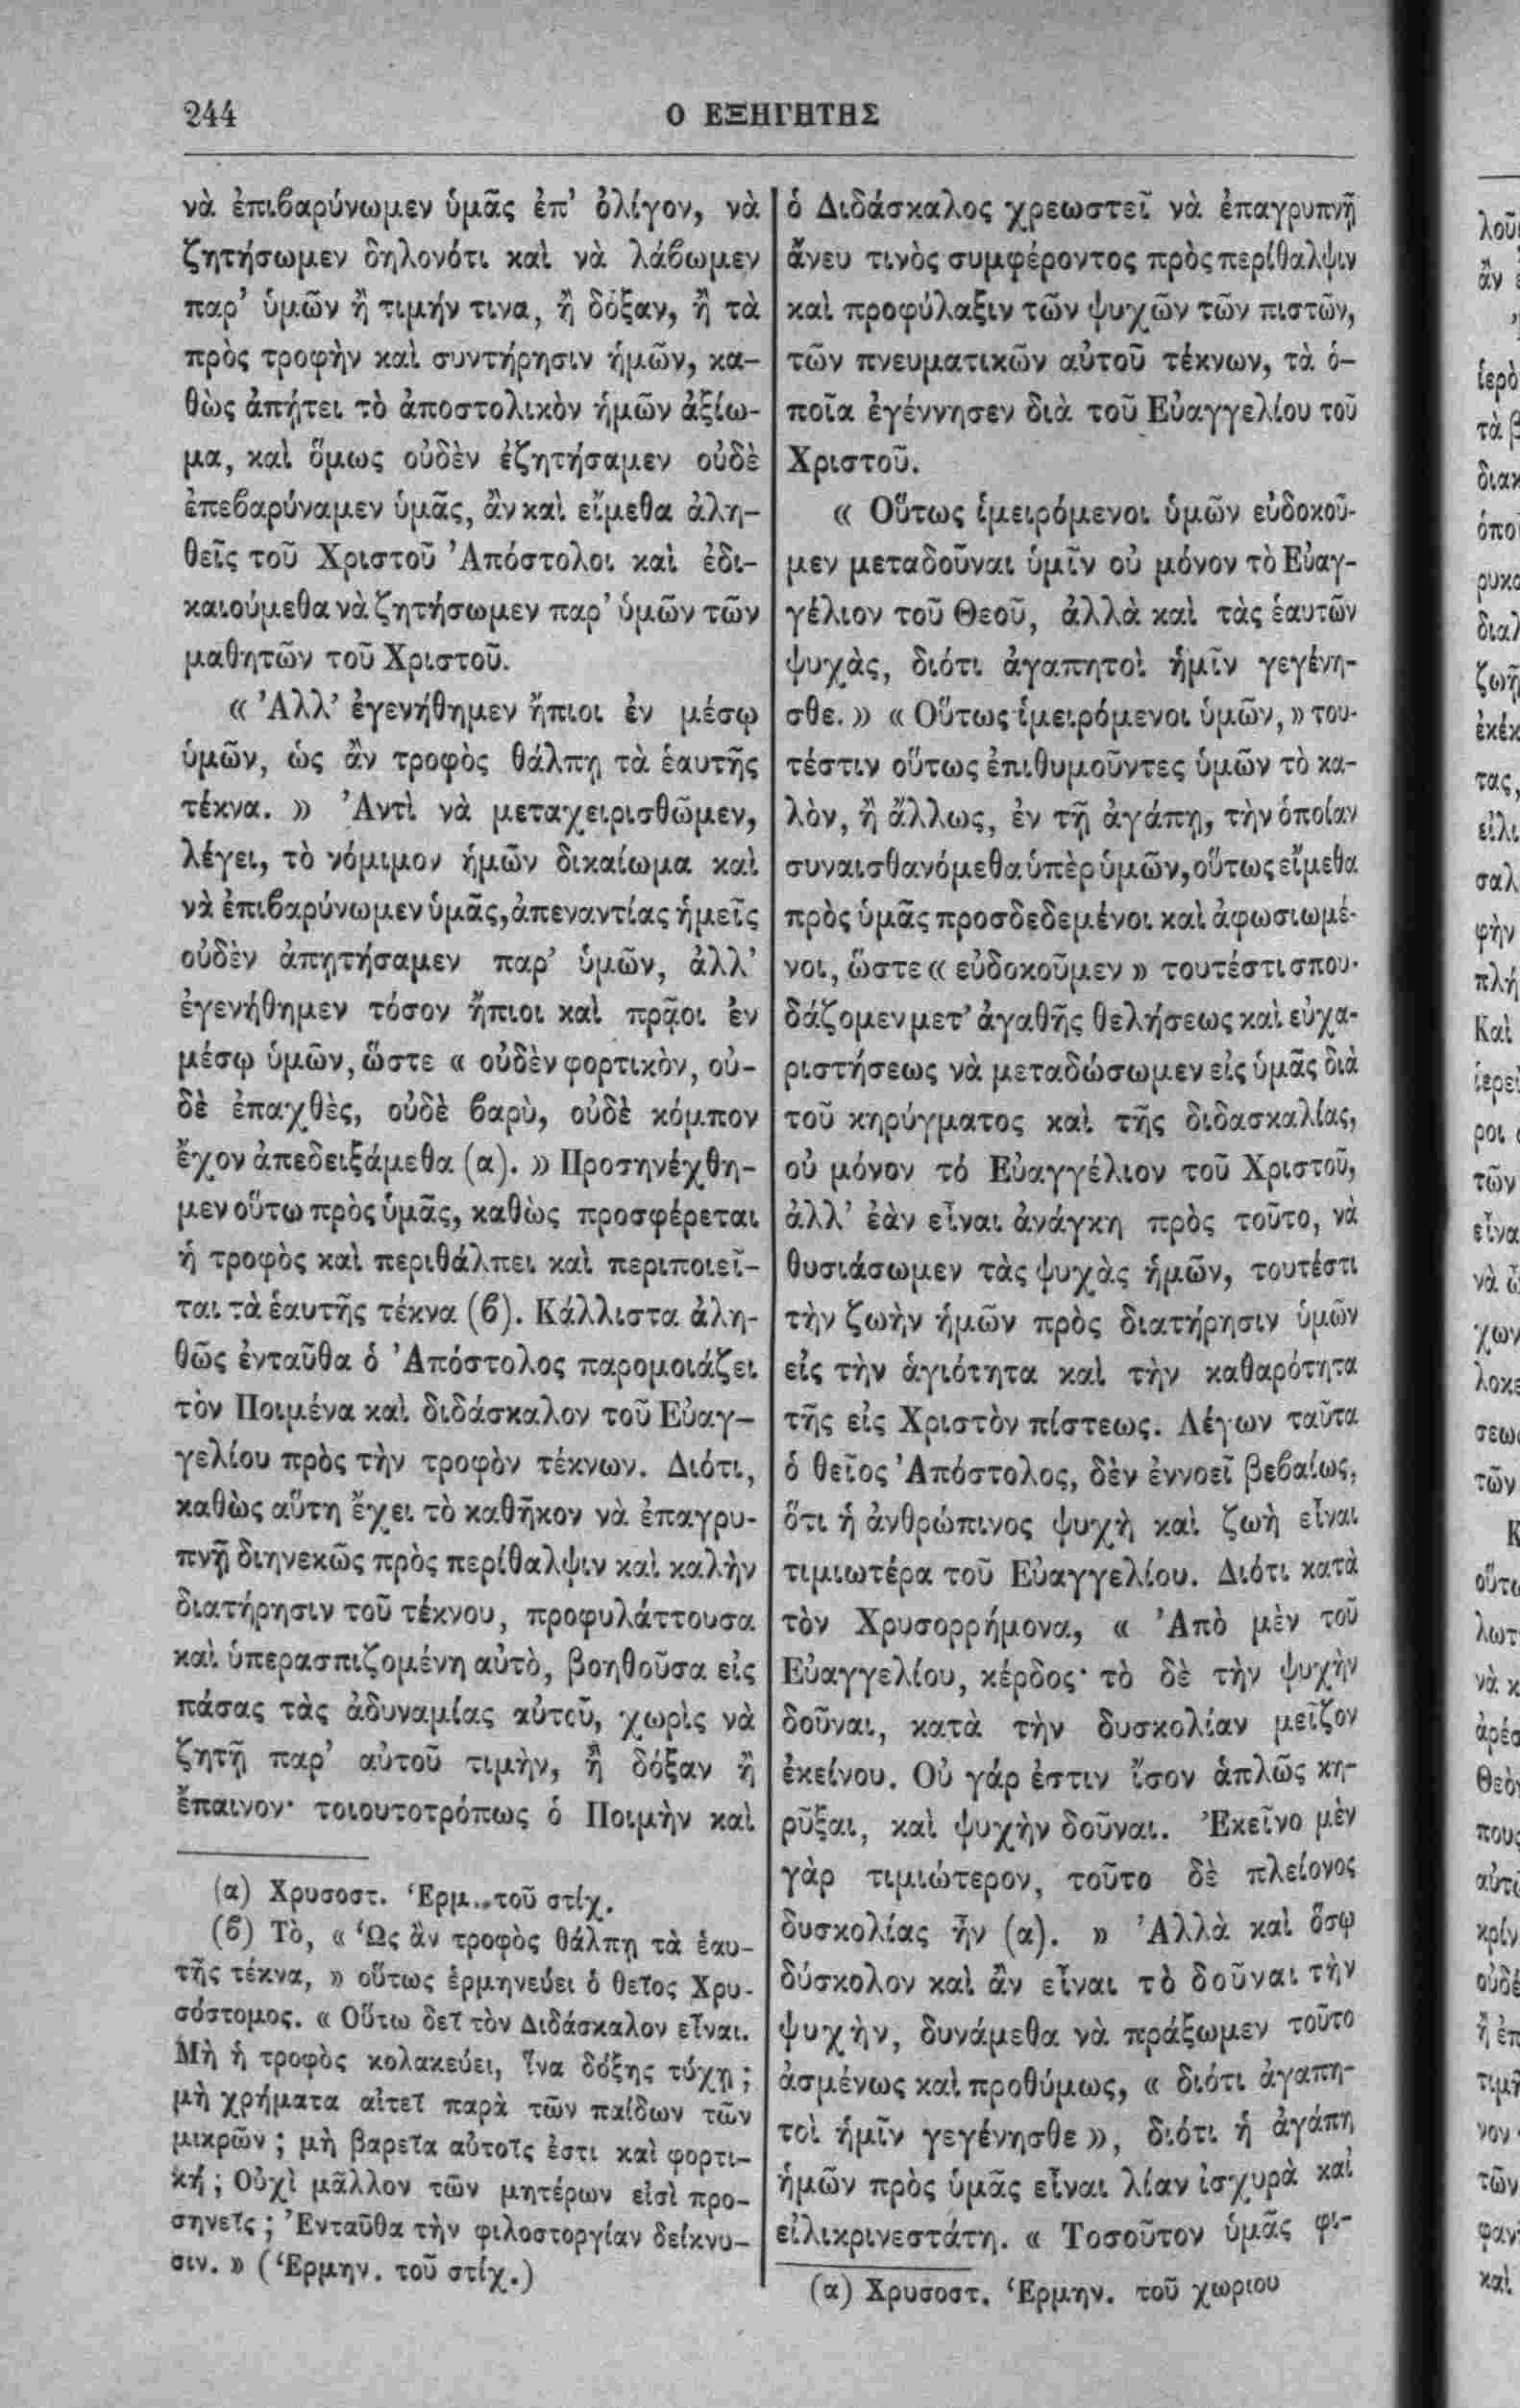 244
Ο ΕΞΗΓΗΤΗΣ
νὰ ἐπιβαρύνωμεν ὑμᾶς ἐπ' ὀλίγον, νὰ
ζητήσωμεν δηλονότι καὶ νὰ λάβωμεν
παρ' ὑμῶν ἢ τιμήν τινα, ἢ δόξαν, ἢ τὰ
πρὸς τροφὴν καὶ συντήρησιν ἡμῶν, κα-
θὼς ἀπῄτει τὸ ἀποστολικὸν ἡμῶν ἀξίω-
μα, καὶ ὅμως οὐδὲν ἐζητήσαμεν οὐδὲ
ἐπεβαρύναμεν ὑμᾶς, ἂν καὶ εἴμεθα ἀλη-
θεῖς τοῦ Χριστοῦ Ἀπόστολοι καὶ ἐδι-
καιούμεθα νὰ ζητήσωμεν παρ' ὑμῶν τῶν
μαθητῶν τοῦ Χριστοῦ.
« Ἀλλ' ἐγενήθημεν ἤπιοι ἐν μέσῳ
ὑμῶν, ὡς ἂν τροφὸς θάλπῃ τὰ ἑαυτῆς
τέκνα. » Ἀντὶ νὰ μεταχειρισθῶμεν,
λέγει, τὸ νόμιμον ἡμῶν δικαίωμα καὶ
νὰ ἐπιβαρύνωμεν ὑμᾶς, ἀπεναντίας ἡμεῖς
οὐδὲν ἀπητήσαμεν παρ' ὑμῶν, ἀλλ'
ἐγενήθημεν τόσον ἤπιοι καὶ πρᾷοι ἐν
μέσῳ ὑμῶν, ὥστε « οὐδὲν φορτικὸν, οὐ-
δὲ ἐπαχθὲς, οὐδὲ βαρὺ, οὐδὲ κόμπον
ἔχον ἀπεδειξάμεθα (α). » Προσηνέχθη-
μεν οὕτω πρὸς ὑμᾶς, καθὼς προσφέρεται
ἡ τροφὸς καὶ περιθάλπει καὶ περιποιεῖ-
ται τὰ ἑαυτῆς τέκνα (β). Κάλλιστα ἀλη-
θῶς ἐνταῦθα ὁ Ἀπόστολος παρομοιάζει
τὸν Ποιμένα καὶ διδάσκαλον τοῦ Εὐαγ-
γελίου πρὸς τὴν τροφὸν τέκνων. Διότι,
καθὼς αὕτη ἔχει τὸ καθῆκον νὰ ἐπαγρυ-
πνῇ διηνεκῶς πρὸς περίθαλψιν καὶ καλὴν
διατήρησιν τοῦ τέκνου, προφυλάττουσα
καὶ ὑπερασπιζομένη αὐτὸ, βοηθοῦσα εἰς
πάσας τὰς ἀδυναμίας αὐτοῦ, χωρὶς νὰ
ζητῇ παρ' αὐτοῦ τιμὴν, ἢ δόξαν ἢ
ἔπαινον· τοιουτοτρόπως ὁ Ποιμὴν καὶ
(α) Χρυσοστ. Ἑρμ. τοῦ στίχ.
(β) Τὸ, « Ὡς ἂν τροφὸς θάλπῃ τὰ ἑαυ-
τῆς τέκνα, » οὕτως ἑρμηνεύει ὁ θεῖος Χρυ-
σόστομος. « Οὕτω δεῖ τὸν Διδάσκαλον εἶναι.
Μὴ ἡ τροφὸς κολακεύει, ἵνα δόξης τύχῃ ;
μὴ χρήματα αἰτεῖ παρὰ τῶν παίδων τῶν
μικρῶν ; μὴ βαρεῖα αὐτοῖς ἐστι καὶ φορτι-
κή ; Οὐχὶ μᾶλλον τῶν μητέρων εἰσὶ προ-
σηνεῖς ; Ἐνταῦθα τὴν φιλοστοργίαν δείκνυ-
σιν. » (Ἑρμην. τοῦ στίχ.)
ὁ Διδάσκαλος χρεωστεῖ νὰ ἐπαγρυπνῇ
ἄνευ τινὸς συμφέροντος πρὸς περίθαλψιν
καὶ προφύλαξιν τῶν ψυχῶν τῶν πιστῶν,
τῶν πνευματικῶν αὐτοῦ τέκνων, τὰ ὁ-
ποῖα ἐγέννησεν διὰ τοῦ Εὐαγγελίου τοῦ
Χριστοῦ.
« Οὕτως ἱμειρόμενοι ὑμῶν εὐδοκοῦ-
μεν μεταδοῦναι ὑμῖν οὐ μόνον τὸ Εὐαγ-
γέλιον τοῦ Θεοῦ, ἀλλὰ καὶ τὰς ἑαυτῶν
ψυχὰς, διότι ἀγαπητοὶ ἡμῖν γεγένη-
σθε. » « Οὕτως ἱμειρόμενοι ὑμῶν, » του-
τέστιν οὕτως ἐπιθυμοῦντες ὑμῶν τὸ κα-
λὸν, ἢ ἄλλως, ἐν τῇ ἀγάπῃ, τὴν ὁποίαν
συναισθανόμεθα ὑπὲρ ὑμῶν, οὕτως εἴμεθα
πρὸς ὑμᾶς προσδεδεμένοι καὶ ἀφωσιωμέ-
νοι, ὥστε « εὐδοκοῦμεν » τουτέστι σπου-
δάζομεν μετ' ἀγαθῆς θελήσεως καὶ εὐχα-
ριστήσεως νὰ μεταδώσωμεν εἰς ὑμᾶς διὰ
τοῦ κηρύγματος καὶ τῆς διδασκαλίας,
οὐ μόνον τό Εὐαγγέλιον τοῦ Χριστοῦ,
ἀλλ' ἐὰν εἶναι ἀνάγκη πρὸς τοῦτο, νὰ
θυσιάσωμεν τὰς ψυχὰς ἡμῶν, τουτέστι
τὴν ζωὴν ἡμῶν πρὸς διατήρησιν ὑμῶν
εἰς τὴν ἁγιότητα καὶ τὴν καθαρότητα
τῆς εἰς Χριστὸν πίστεως. Λέγων ταῦτα
ὁ θεῖος Ἀπόστολος, δὲν ἐννοεῖ βεβαίως,
ὅτι ἡ ἀνθρώπινος ψυχὴ καὶ ζωὴ εἶναι
τιμιωτέρα τοῦ Εὐαγγελίου. Διότι κατὰ
τὸν Χρυσορρήμονα, « Ἀπὸ μὲν τοῦ
Εὐαγγελίου, κέρδος· τὸ δὲ τὴν ψυχὴν
δοῦναι, κατὰ τὴν δυσκολίαν μεῖζον
ἐκείνου. Οὐ γάρ ἐστιν ἴσον ἁπλῶς κη-
ρῦξαι, καὶ ψυχὴν δοῦναι. Ἐκεῖνο μὲν
γὰρ τιμιώτερον, τοῦτο δὲ πλείονος
δυσκολίας ἦν (α). » Ἀλλὰ καὶ ὅσῳ
δύσκολον καὶ ἂν εἶναι τὸ δοῦναι τὴν
ψυχὴν, δυνάμεθα νὰ πράξωμεν τοῦτο
ἀσμένως καὶ προθύμως, « διότι ἀγαπη-
τοὶ ἡμῖν γεγένησθε », διότι ἡ ἀγάπη
ἡμῶν πρὸς ὑμᾶς εἶναι λίαν ἰσχυρὰ καὶ
εἰλικρινεστάτη. « Τοσοῦτον ὑμᾶς φι-
(α) Χρυσοστ. Ἑρμην. τοῦ χωριου